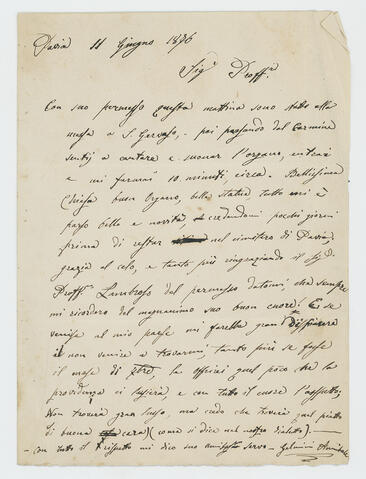 Pavia 11 Giugno 1876
Sigr Proffr
Con suo permesso questa mattina sono stato alla
messa a S. Gervaso, – poi passando dal Carmine
sentij a cantare e suonar l'organo, entrai
e mi fermai 10. minuti circa. Bellissima
Chiesa buon Organo, belle statue tutto mi è
parso bello e novità, credendomi pochi giorni
prima di restar nel cimitero di Pavia,
grazia al celo, e tanto più ringraziando il Sig D.
Proffr Lombroso dal permesso datomi, che sempre
mi ricordero del magnanimo suo buon cuore. E se
venisse al mio paese mi farebbe gran Dispiacere
a non venire a trovarmi, tanto più se fosse
il mese di le officej quel poco che la
providenza ci lascierà e con tutto il cuore l'aspetto;
Non troverà gran lusso, ma credo che troverà quel piatto
di buona cara) (come si dice nel nostro dialetto). –
– con tutto il rispetto mi dico suo amilissto servo – Gelmini Annibale